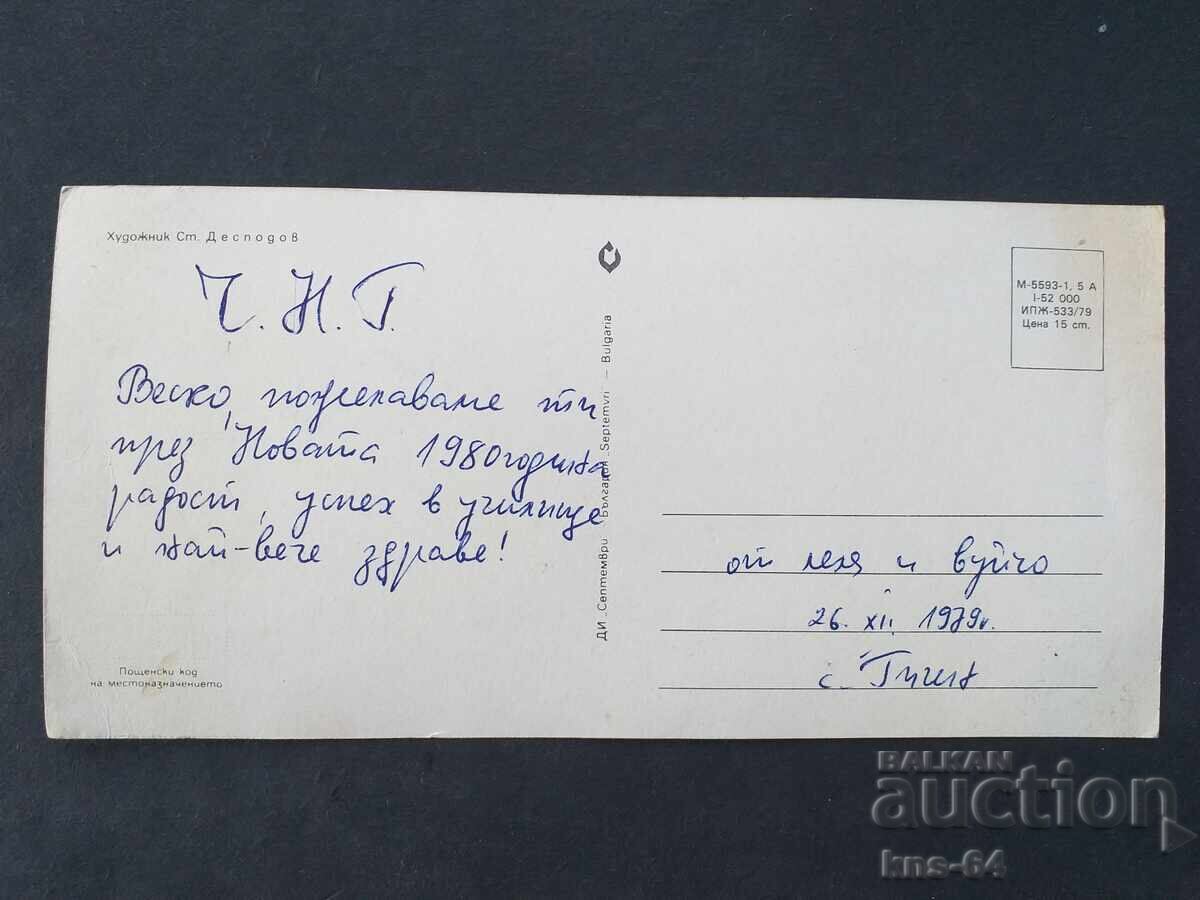 Художник Ст. Десподов
Ч. Н. Г.
Веско, пожелаваме ти
през Новата 1980 година
радост, успех в училище
и най-вече здраве!
Пощенски код
на местоназначението
ДИ „Септември" България „Septemvri" — Bulgaria
М-5593-1, 5 А
I-52 000
ИПЖ-533/79
Цена 15 ст.
от леля и вуйчо
26. XII. 1979г.
с. Гиген
BALKAN
auction
kns-64